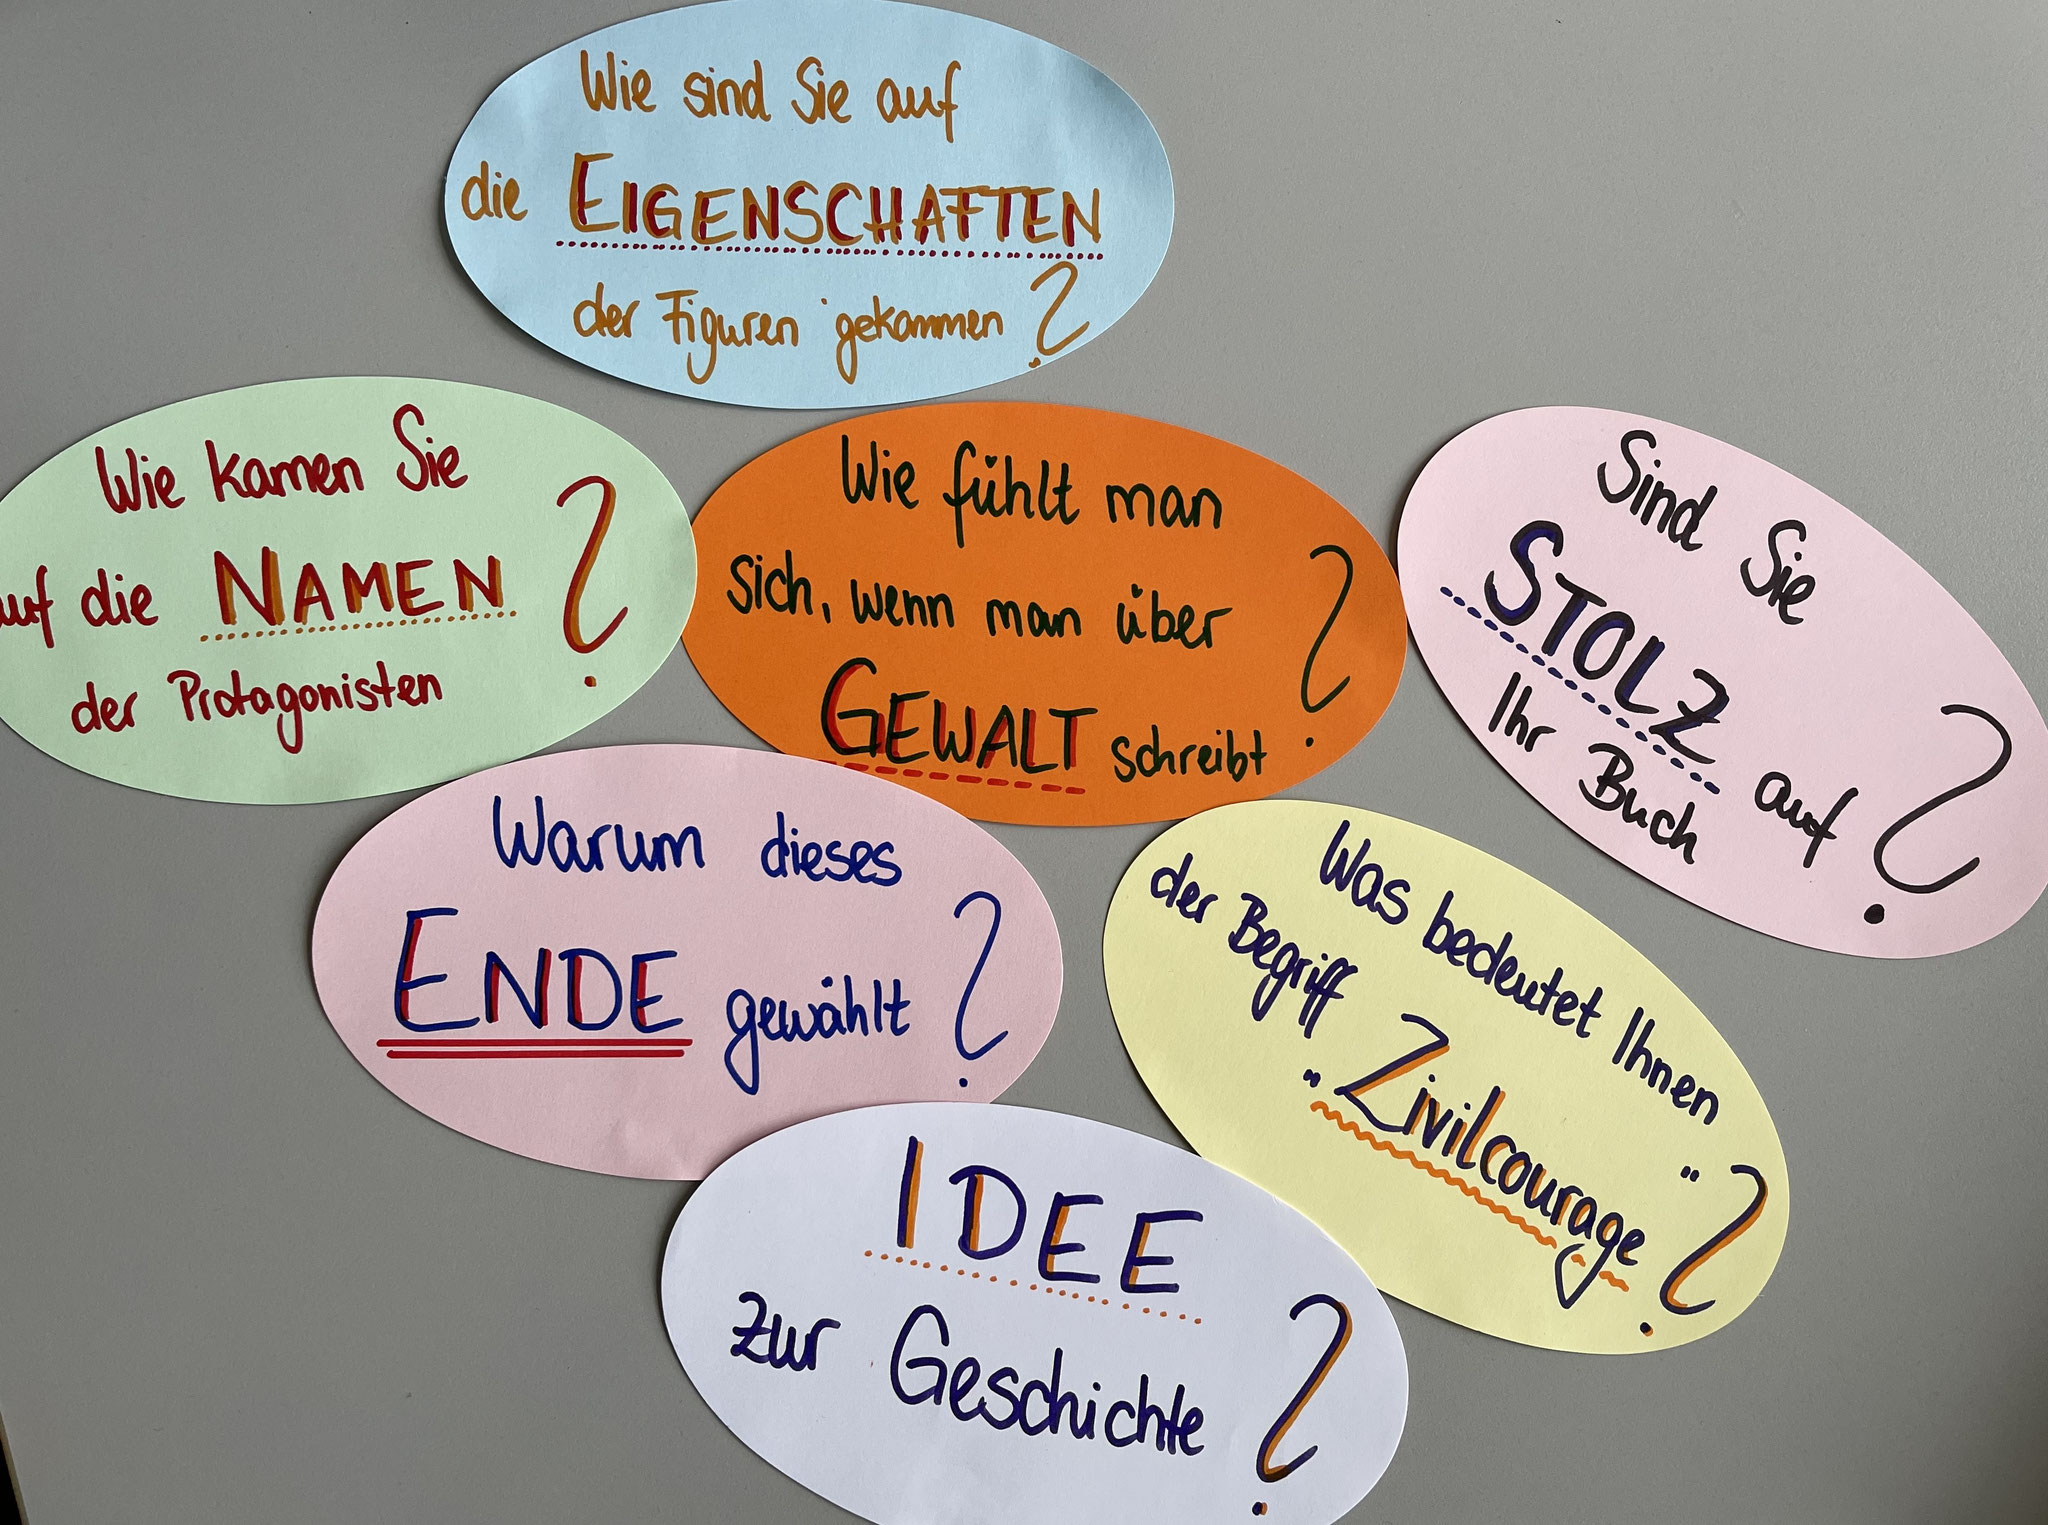 Wie sind Sie auf
die EIGENSCHAFTEN
der Figuren gekommen?
Wie kamen Sie
auf die NAMEN
der Protagonisten?
Wie fühlt man
sich, wenn man über
GEWALT schreibt?
Sind Sie
STOLZ auf
Ihr Buch?
Warum dieses
ENDE gewählt?
Was bedeutet Ihnen
der Begriff
"Zivilcourage"?
IDEE
zur Geschichte?